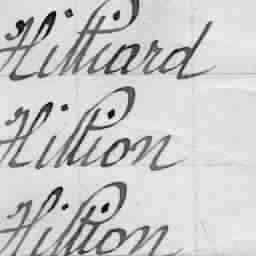 Hilliard
Hillion
Hillion